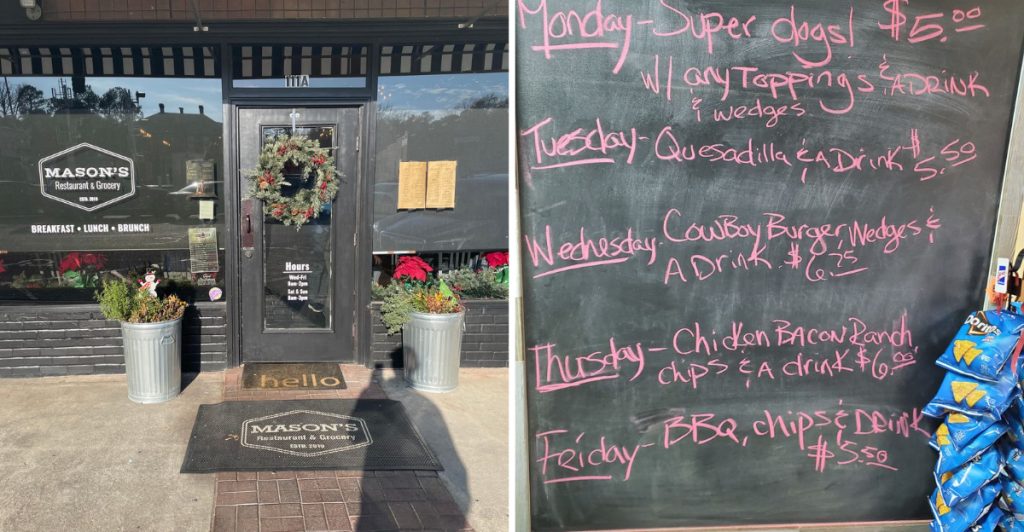 111A
MASON'S
Restaurant & Grocery
ESTD. 2019
BREAKFAST • LUNCH • BRUNCH
Hours
Wed-Fri
8am-2pm
Sat & Sun
8am-3pm
hello
MASON'S
Restaurant & Grocery
ESTD. 2019
Monday - Super dogs! $5.00
w/ any Toppings & A DRINK
& wedges
Tuesday - Quesadilla & A Drink $5.50
Wednesday - CowBoy Burger, Wedges &
A Drink. $6.75
Thursday - Chicken BACON Ranch
chips & A drink $6.00
Friday - BBQ, chips & Drink
$5.50
Doritos